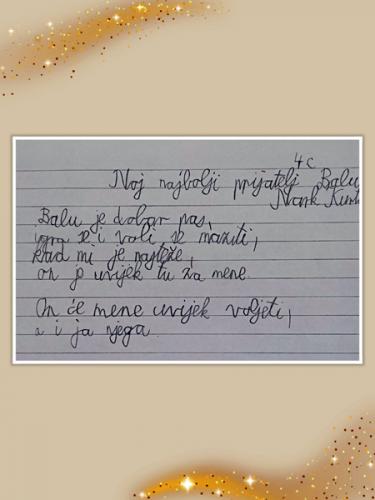 4c
Moj najbolji prijatelj Balu
Mark
Balu je dobar pas,
igra se i voli se maziti,
kad mi je najteže,
on je uvijek tu za mene.
On će mene uvijek voljeti,
a i ja njega.